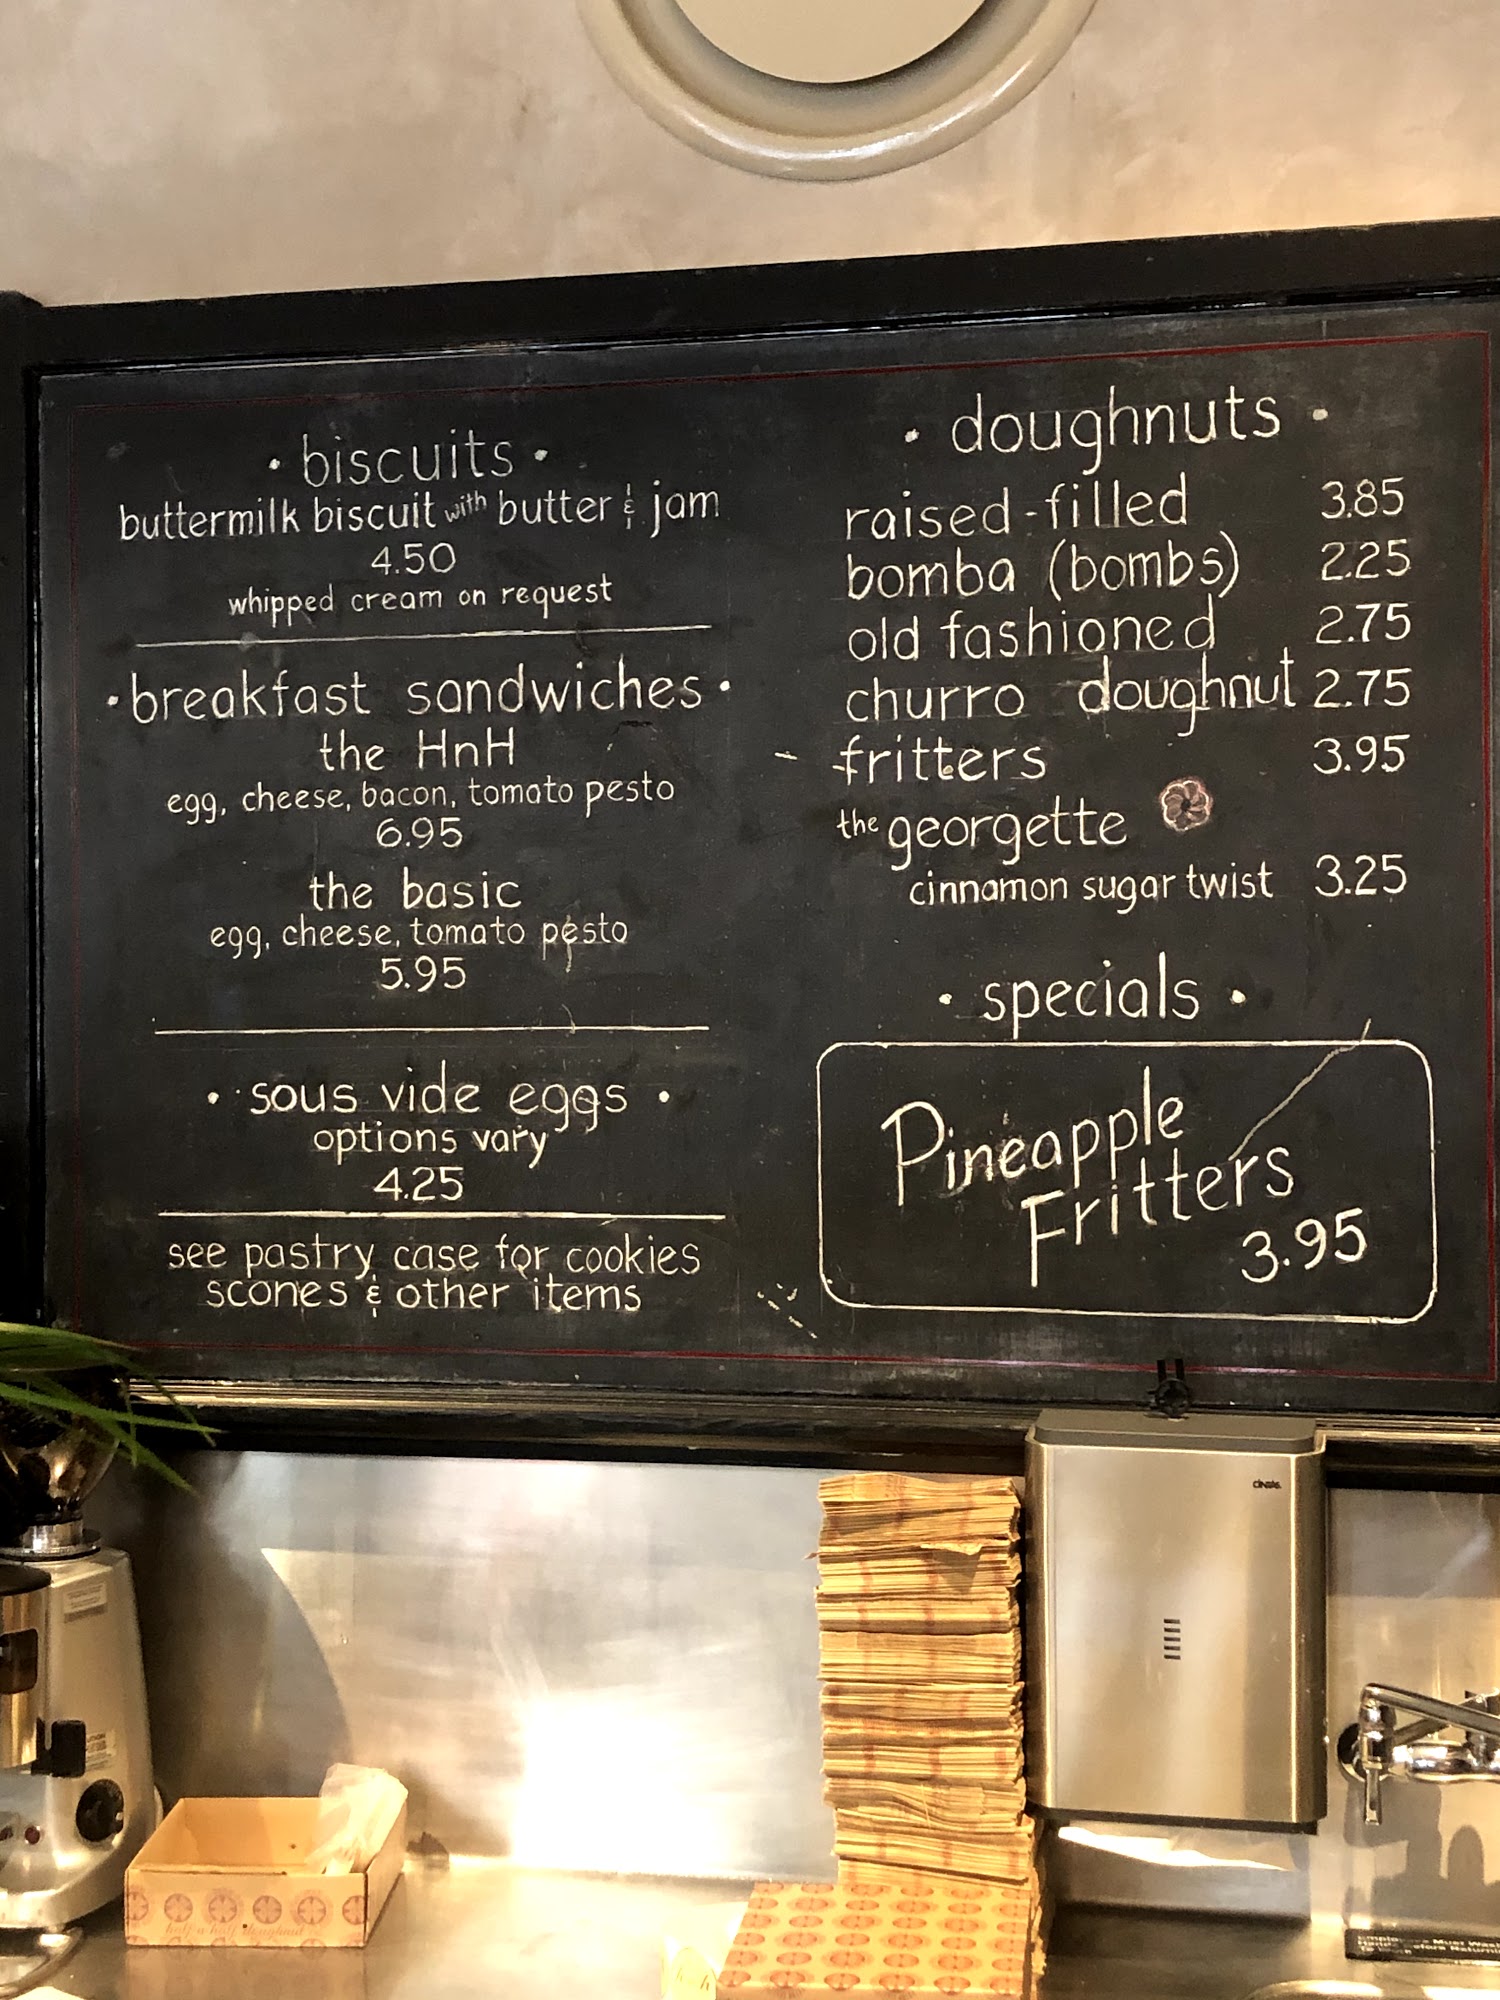 · biscuits ·
buttermilk biscuit with butter & jam
4.50
whipped cream on request
· breakfast sandwiches ·
the HnH
egg, cheese, bacon, tomato pesto
6.95
the basic
egg, cheese, tomato pesto
5.95
· sous vide eggs ·
options vary
4.25
see pastry case for cookies
scones & other items
· doughnuts ·
raised-filled 3.85
bomba (bombs) 2.25
old fashioned 2.75
churro doughnut 2.75
fritters 3.95
the georgette
cinnamon sugar twist 3.25
· specials ·
Pineapple
Fritters
3.95
CINTAS
Employees Must Wash
Hands Before Returning